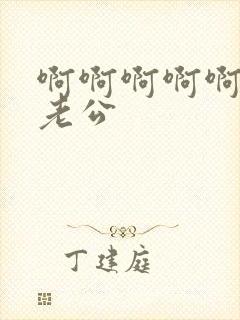 啊啊啊啊啊
老公
丁建庭